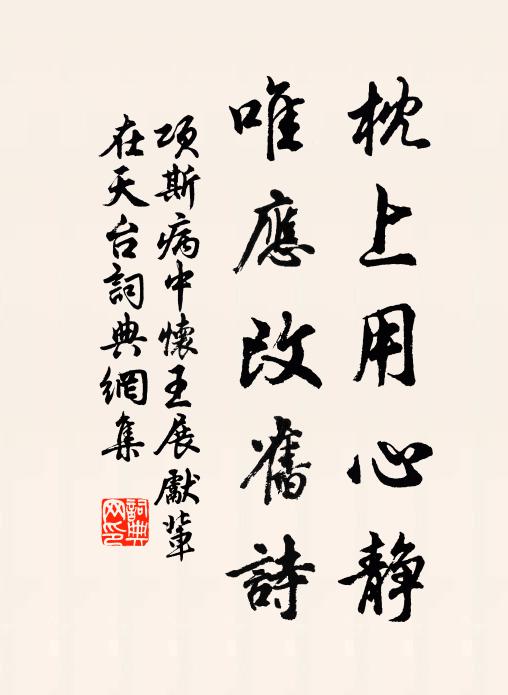 枕上用心静
唯應改舊詩
項斯病中懷王展獻輩
在天台詞典網集
詞典網印